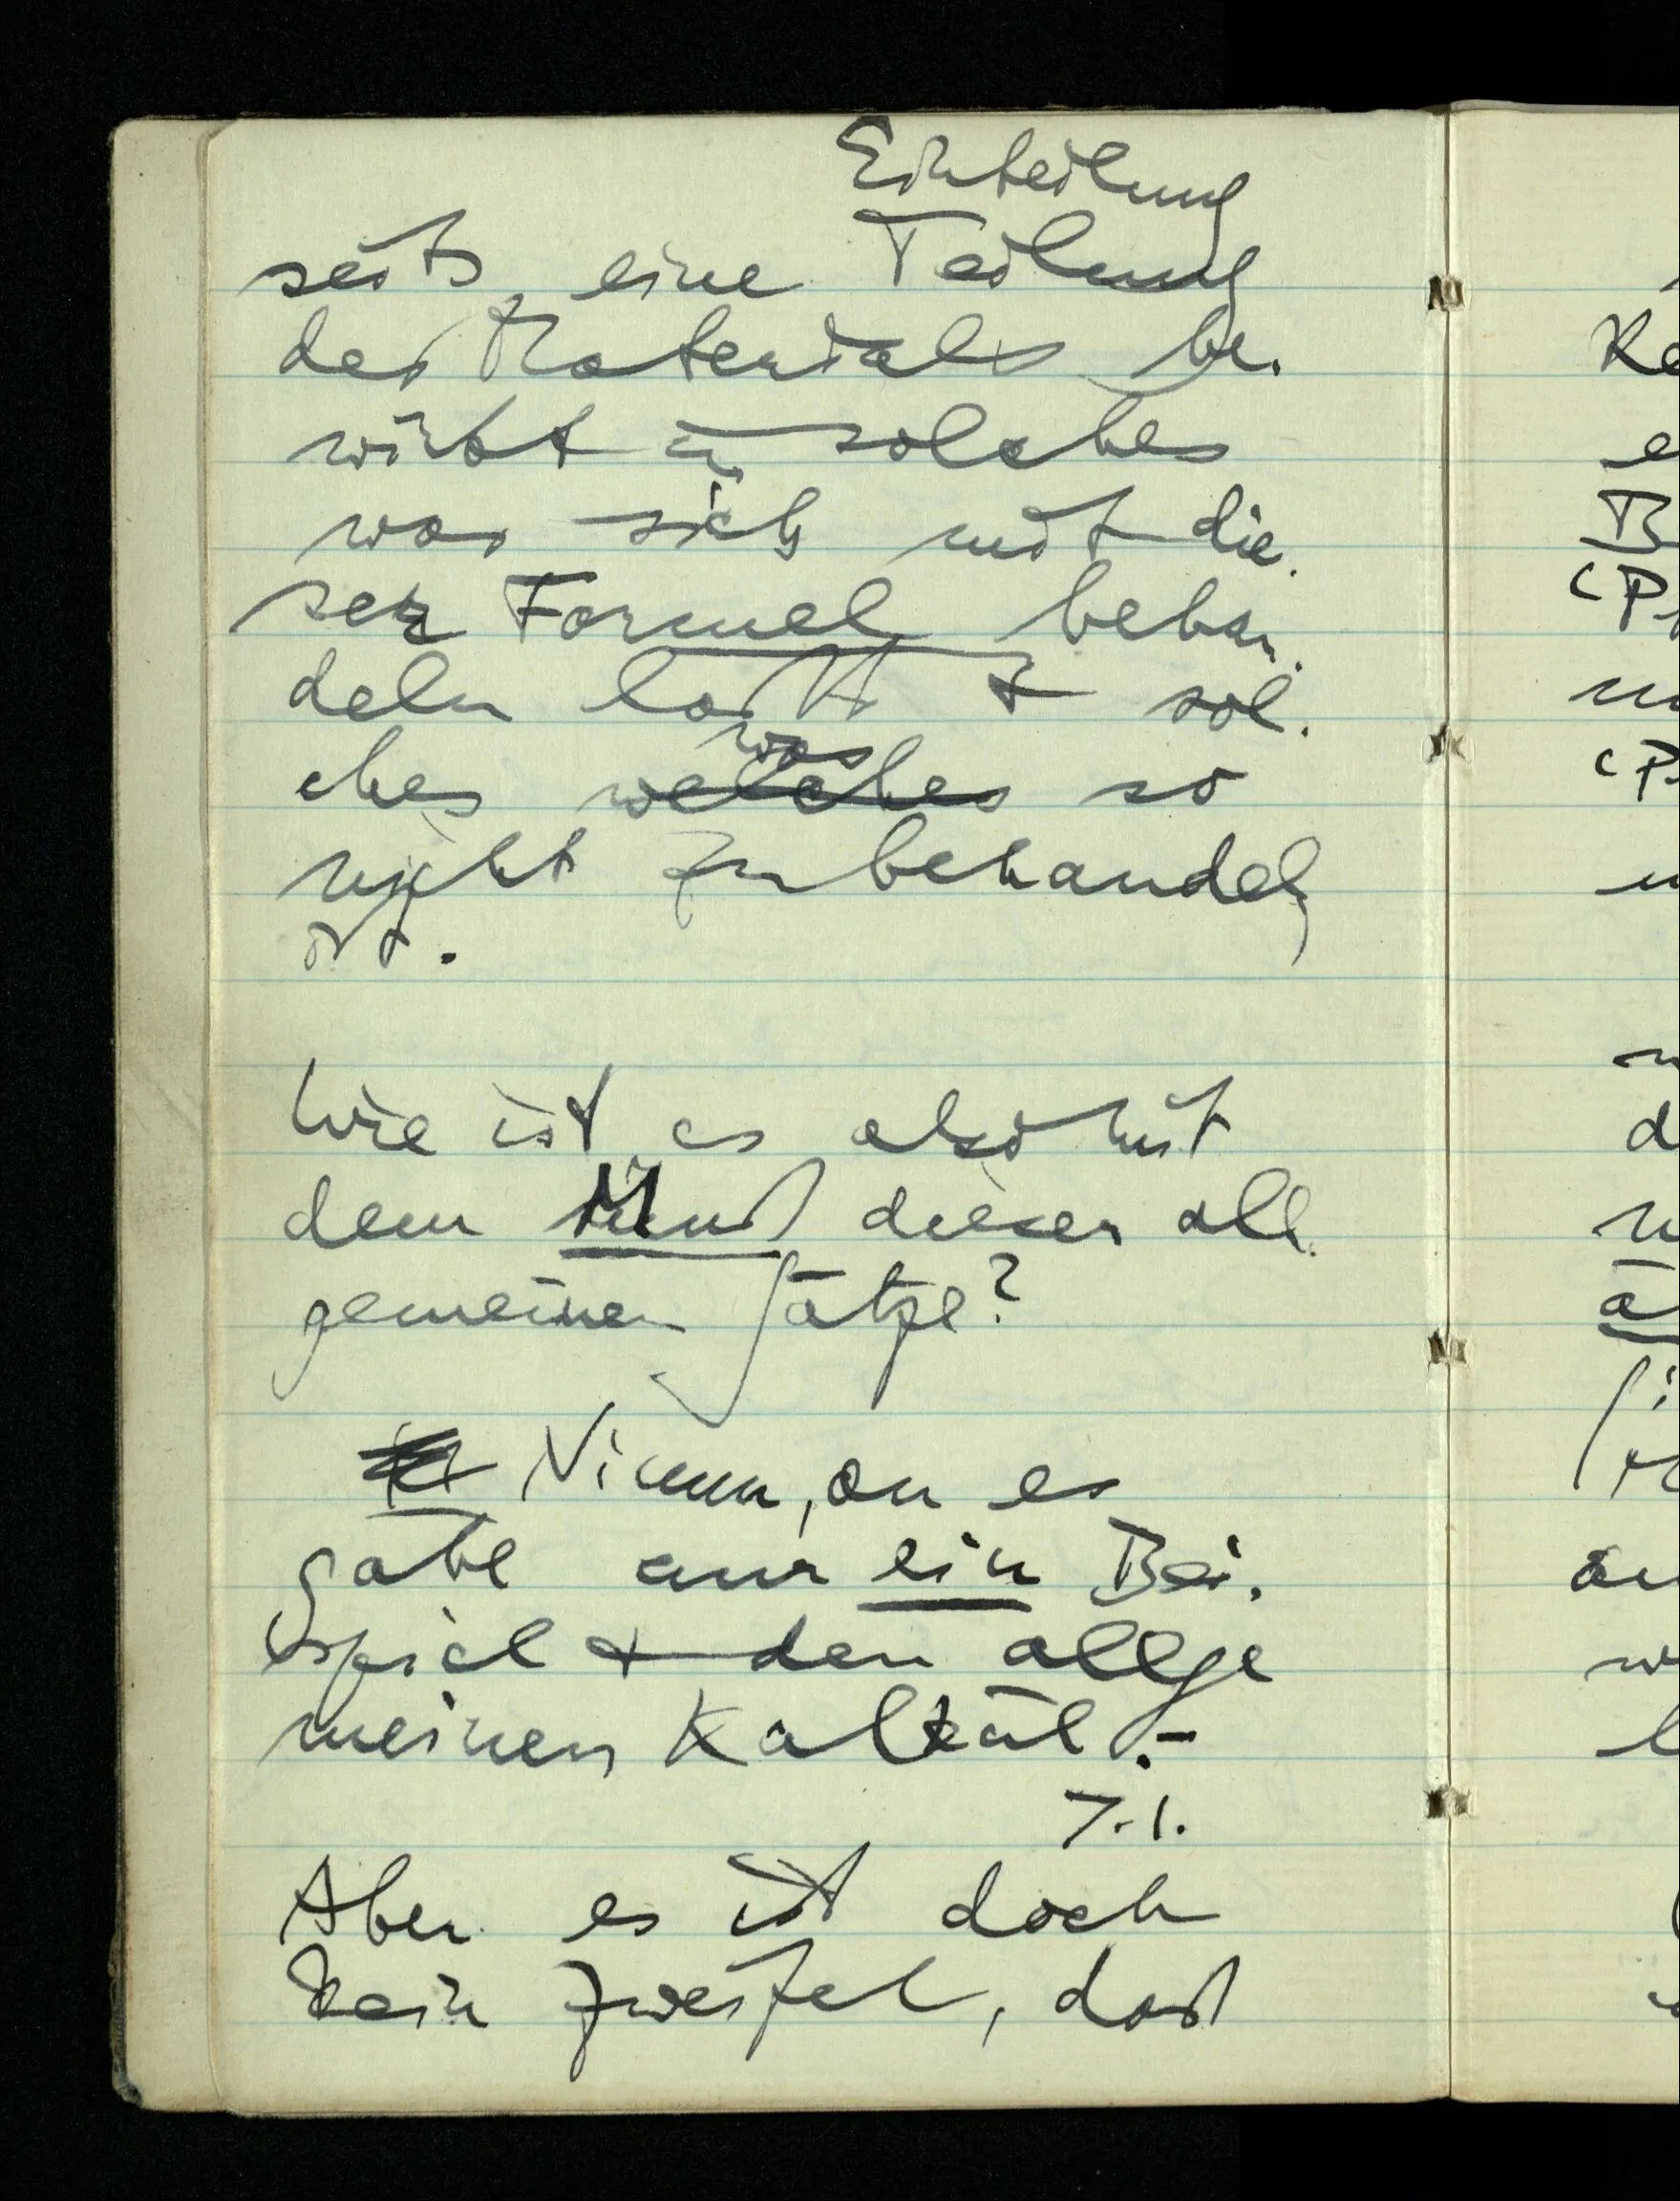 Einteilung
seits, eine Teilung
des Materials be-
wirkt in solches
was sich mit die-
ser Formel behan-
deln läßt & sol-
ches welches was so
nicht zu behandeln
ist.
Wie ist es also mit
dem Muß dieser all-
gemeinen Sätze?
Nimm, an es
gäbe nur ein Bei-
spiel & den allge
meinen Kalkül. –
7.1.
Aber es ist doch
kein Zweifel, daß